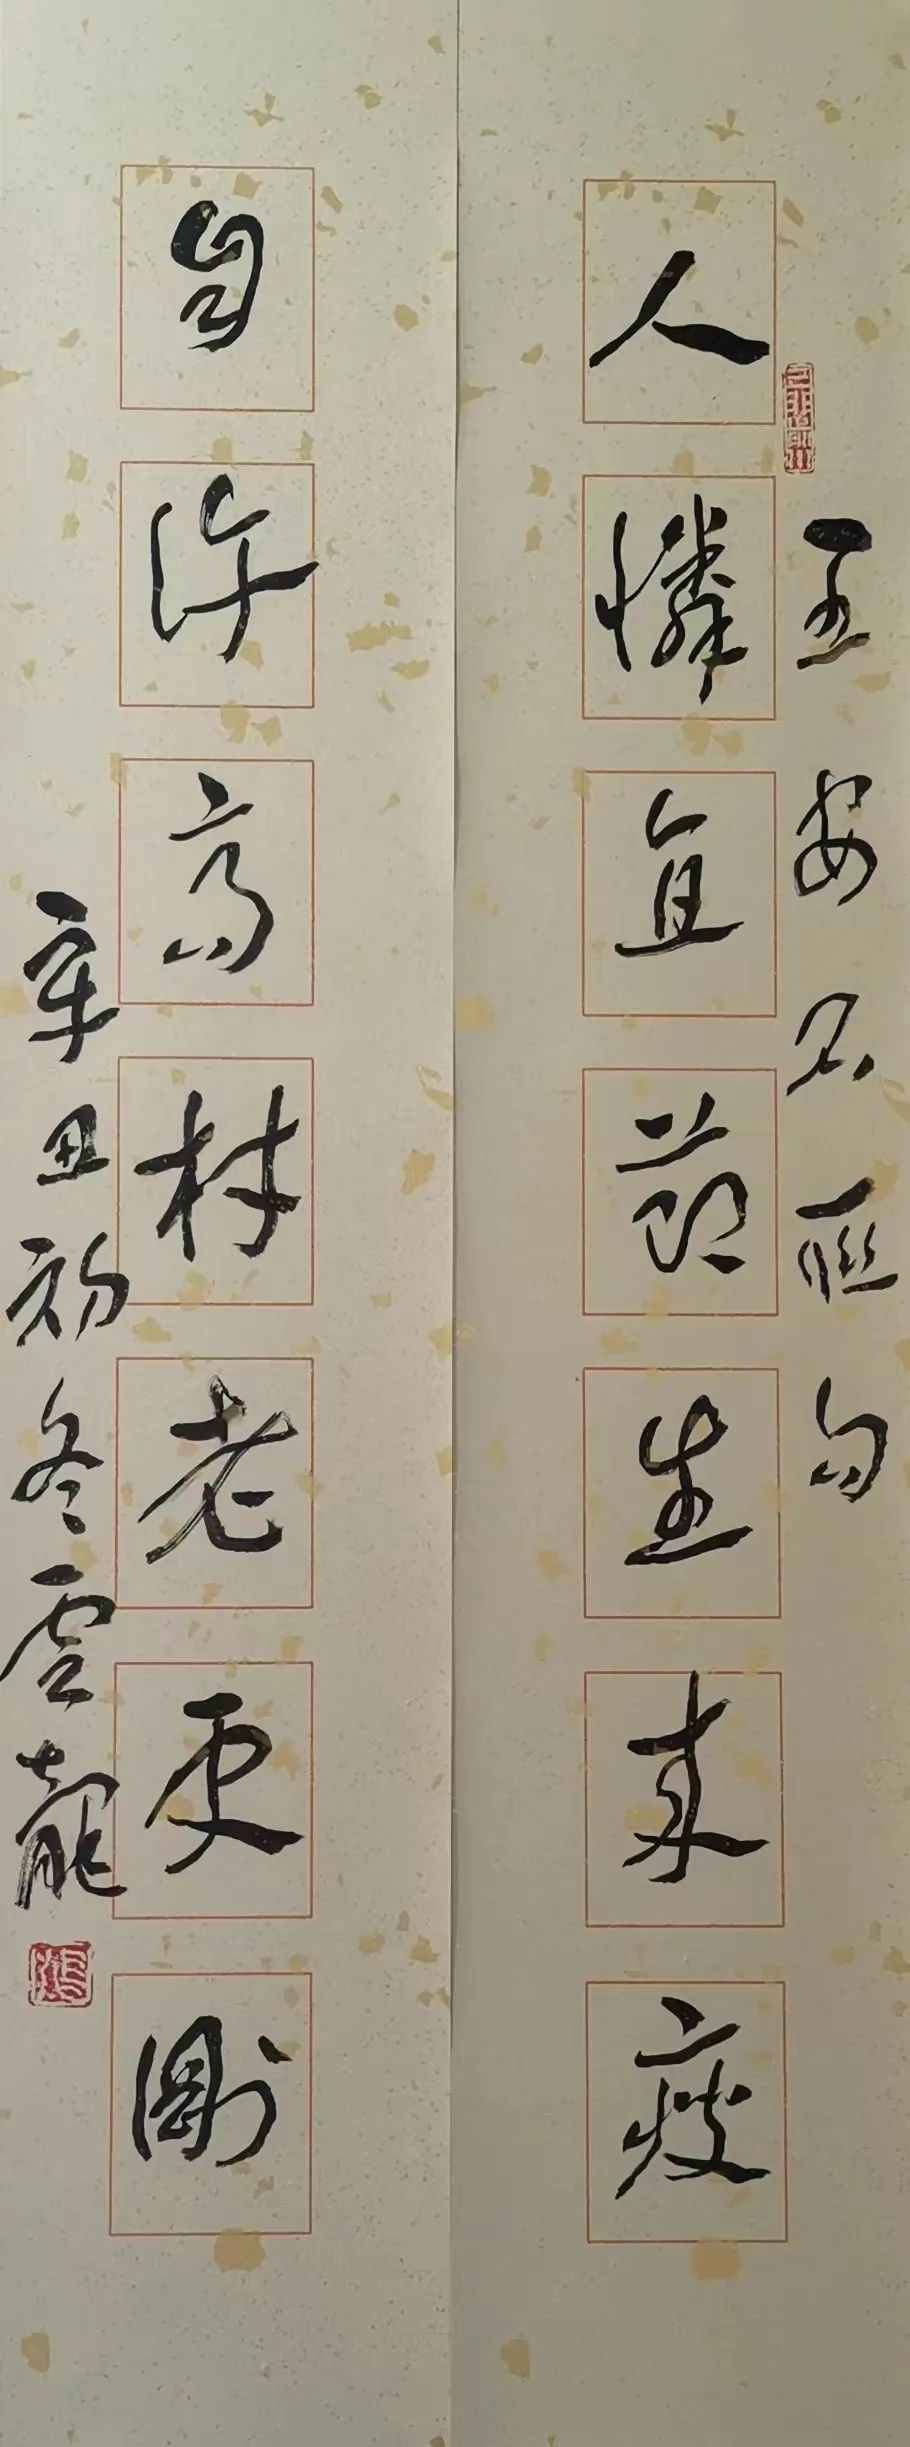 王安石聯句
人憐直節生来瘦
自許高材老更剛
辛丑初冬雲龍